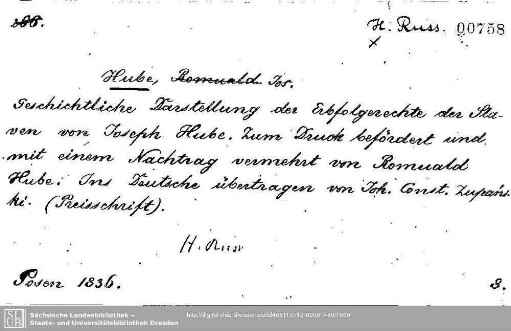 H. Russ. 00758
Hube, Romuald Jos.
Geschichtliche Darstellung der Erbfolgerechte der Sla-
ven von Joseph Hube. Zum Druck befördert und
mit einem Nachtrag vermehrt von Romuald
Hube. Ins Deutsche übertragen von Joh. Const. Zupańs-
ki. (Preisschrift).
H. Russ
Posen 1836. 8.
Sächsische Landesbibliothek –
Staats- und Universitätsbibliothek Dresden